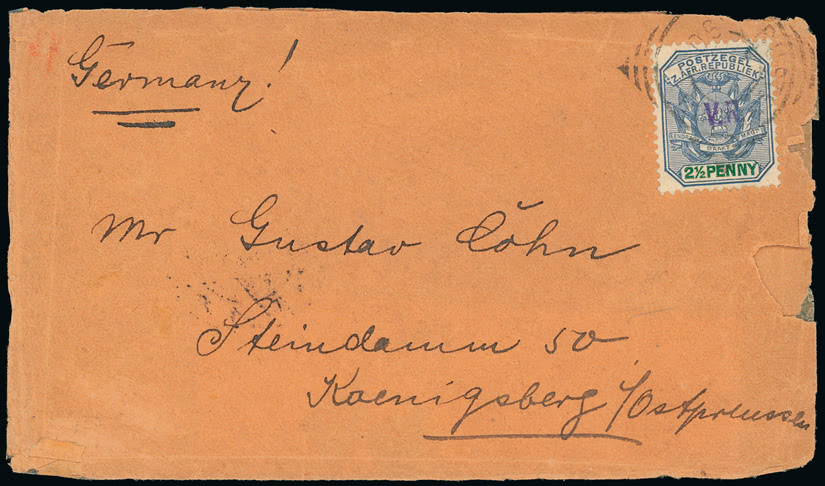 Germany!
POSTZEGEL
Z. AFR. REPUBLIEK
V.R
EENDRAGT MAAKT MAGT
2½ PENNY
Mr Gustav Cöhn
Steindamm 50
Koenigsberg i/Ostpreussen